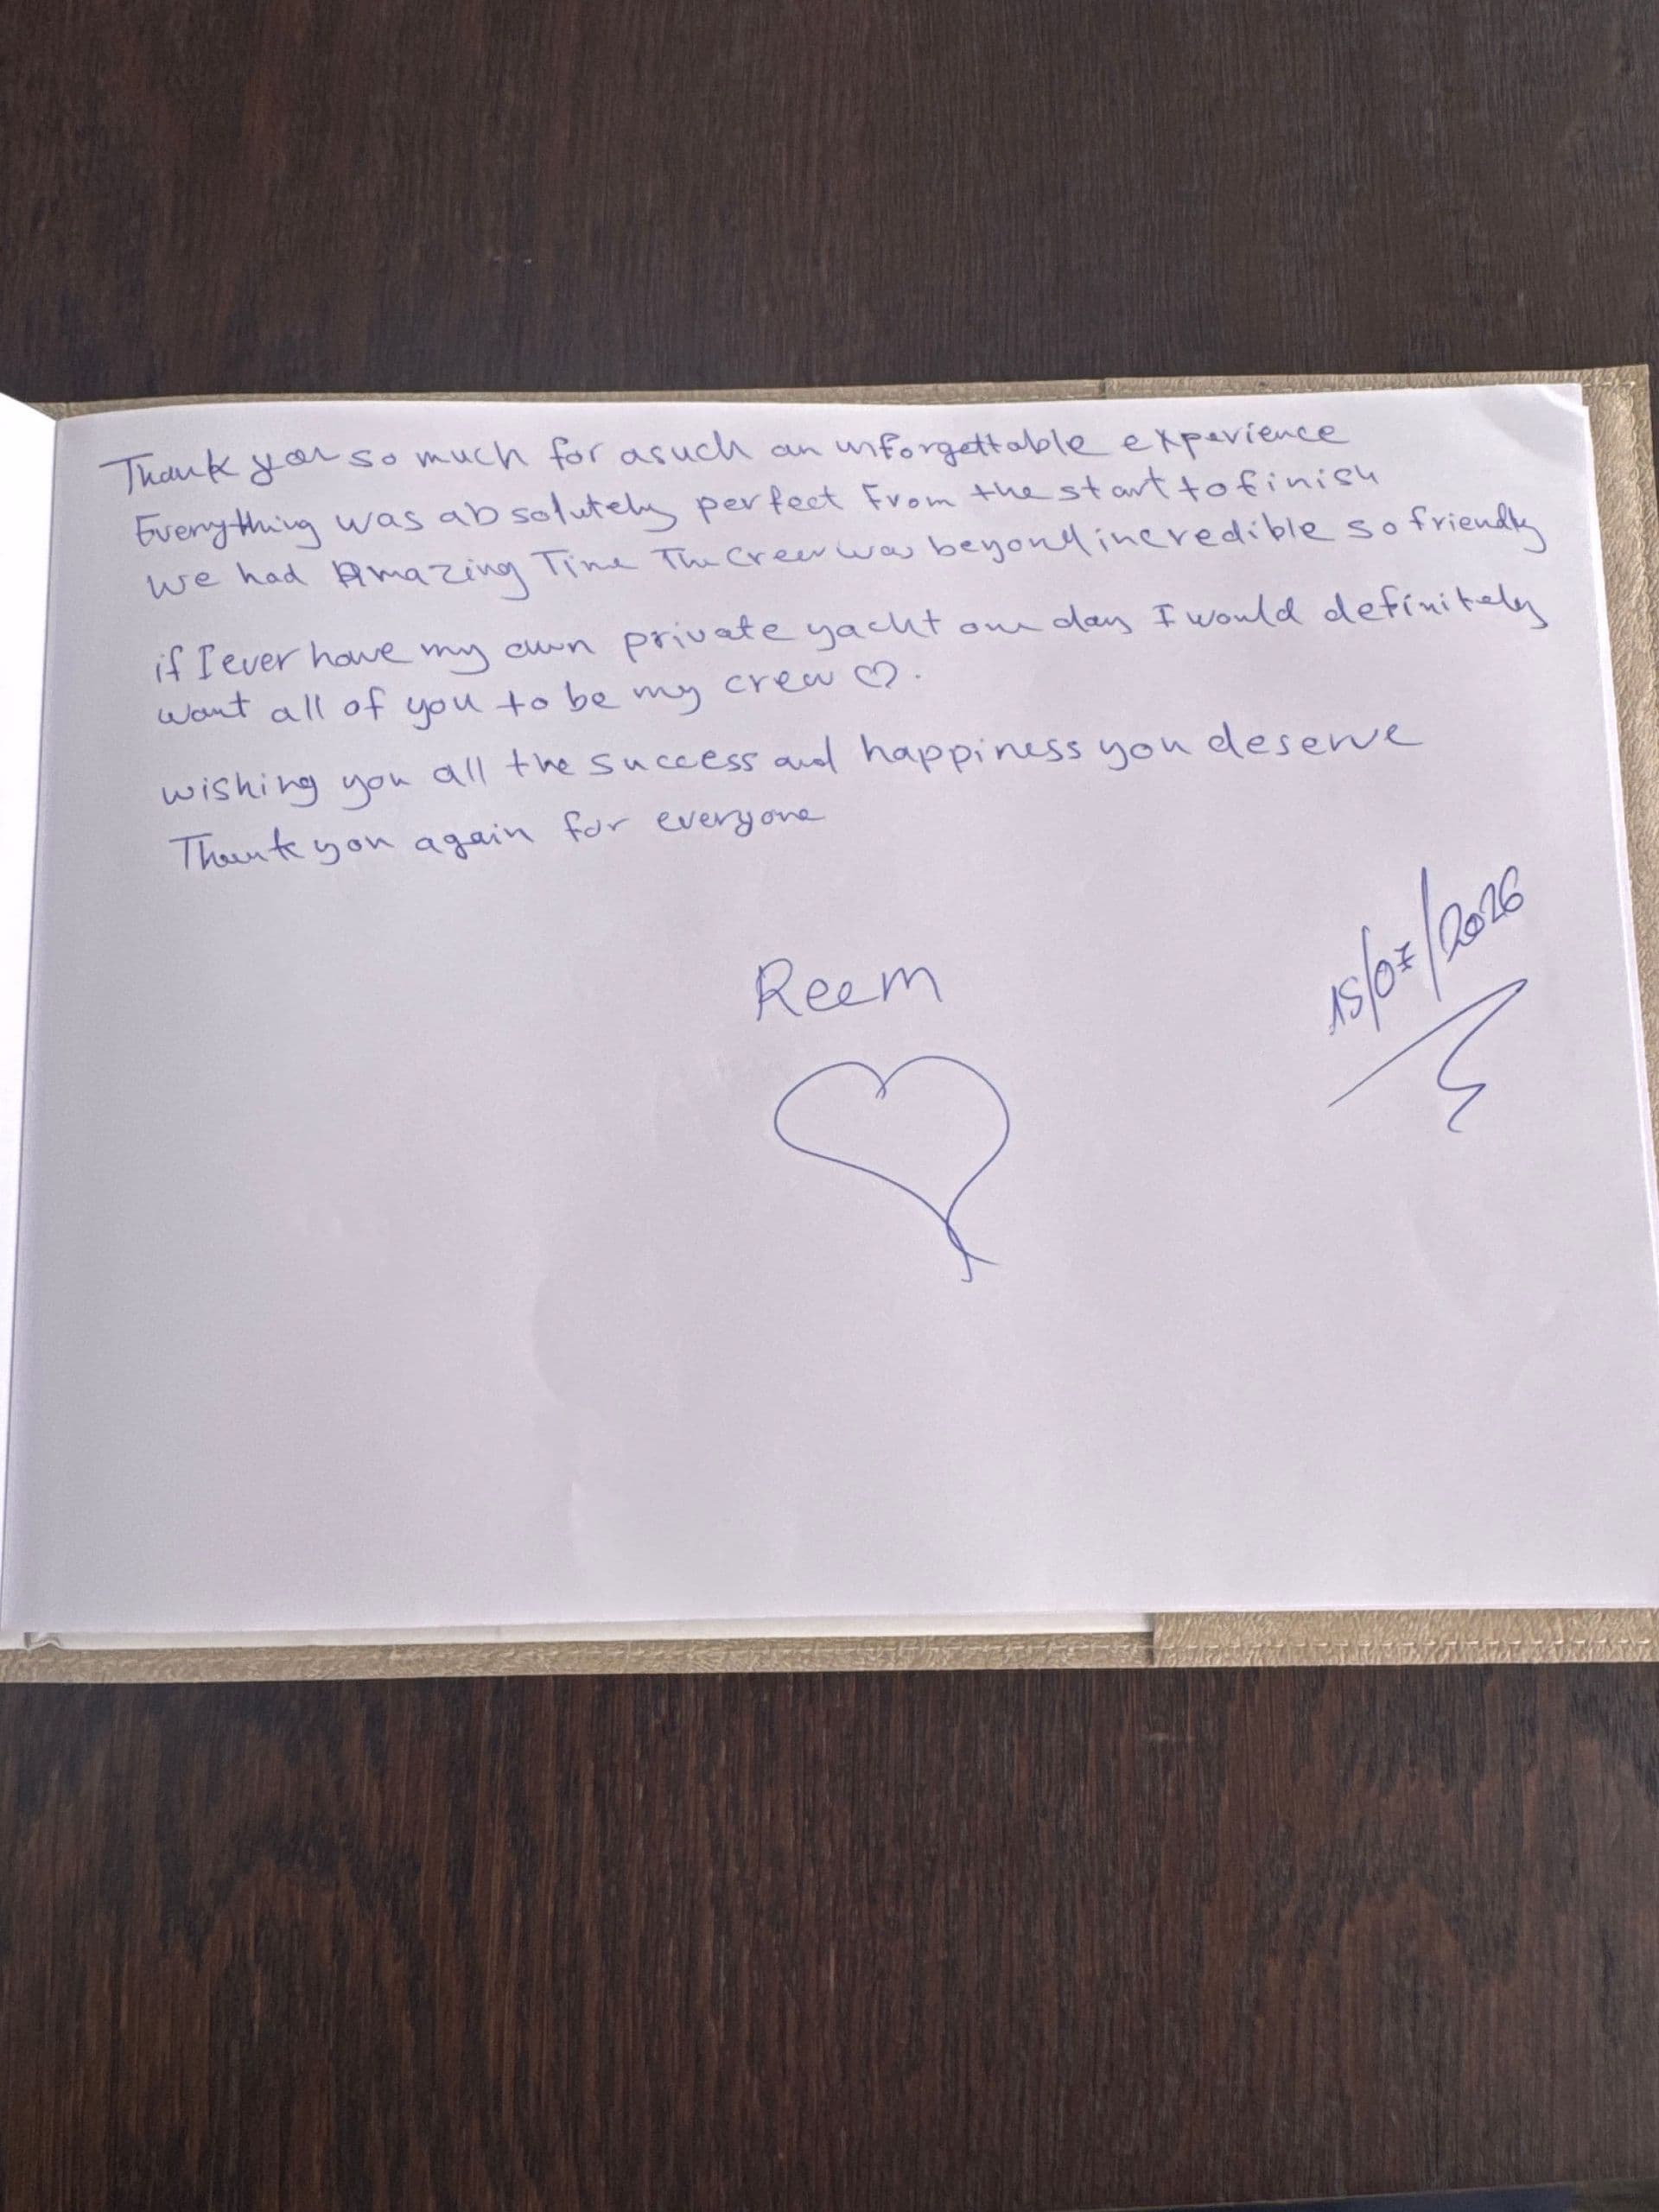 Thank you so much for asuch an unforgettable experience
Everything was absolutely perfect From the start to finish
we had Amazing Time The crew was beyond incredible so friendly
if I ever have my own private yacht one day I would definitely
want all of you to be my crew ♡.
wishing you all the success and happiness you deserve
Thank you again for everyone
Reem
15/07/2026